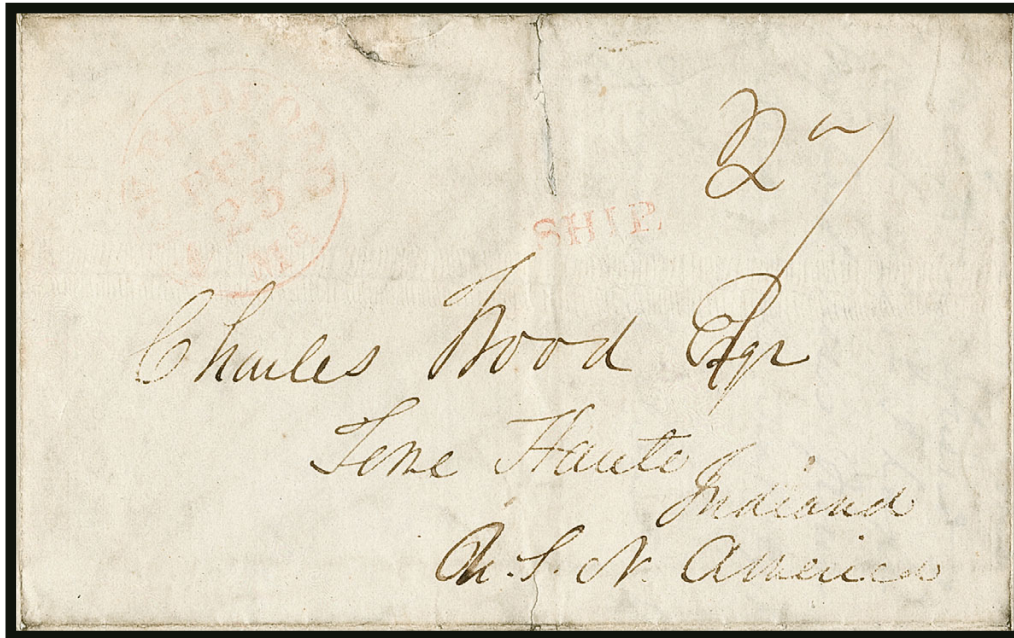 N. BEDFORD
23
Ms
27
SHIP
Charles Wood Esqr
Terre Haute
Indiana
U.S. N. America